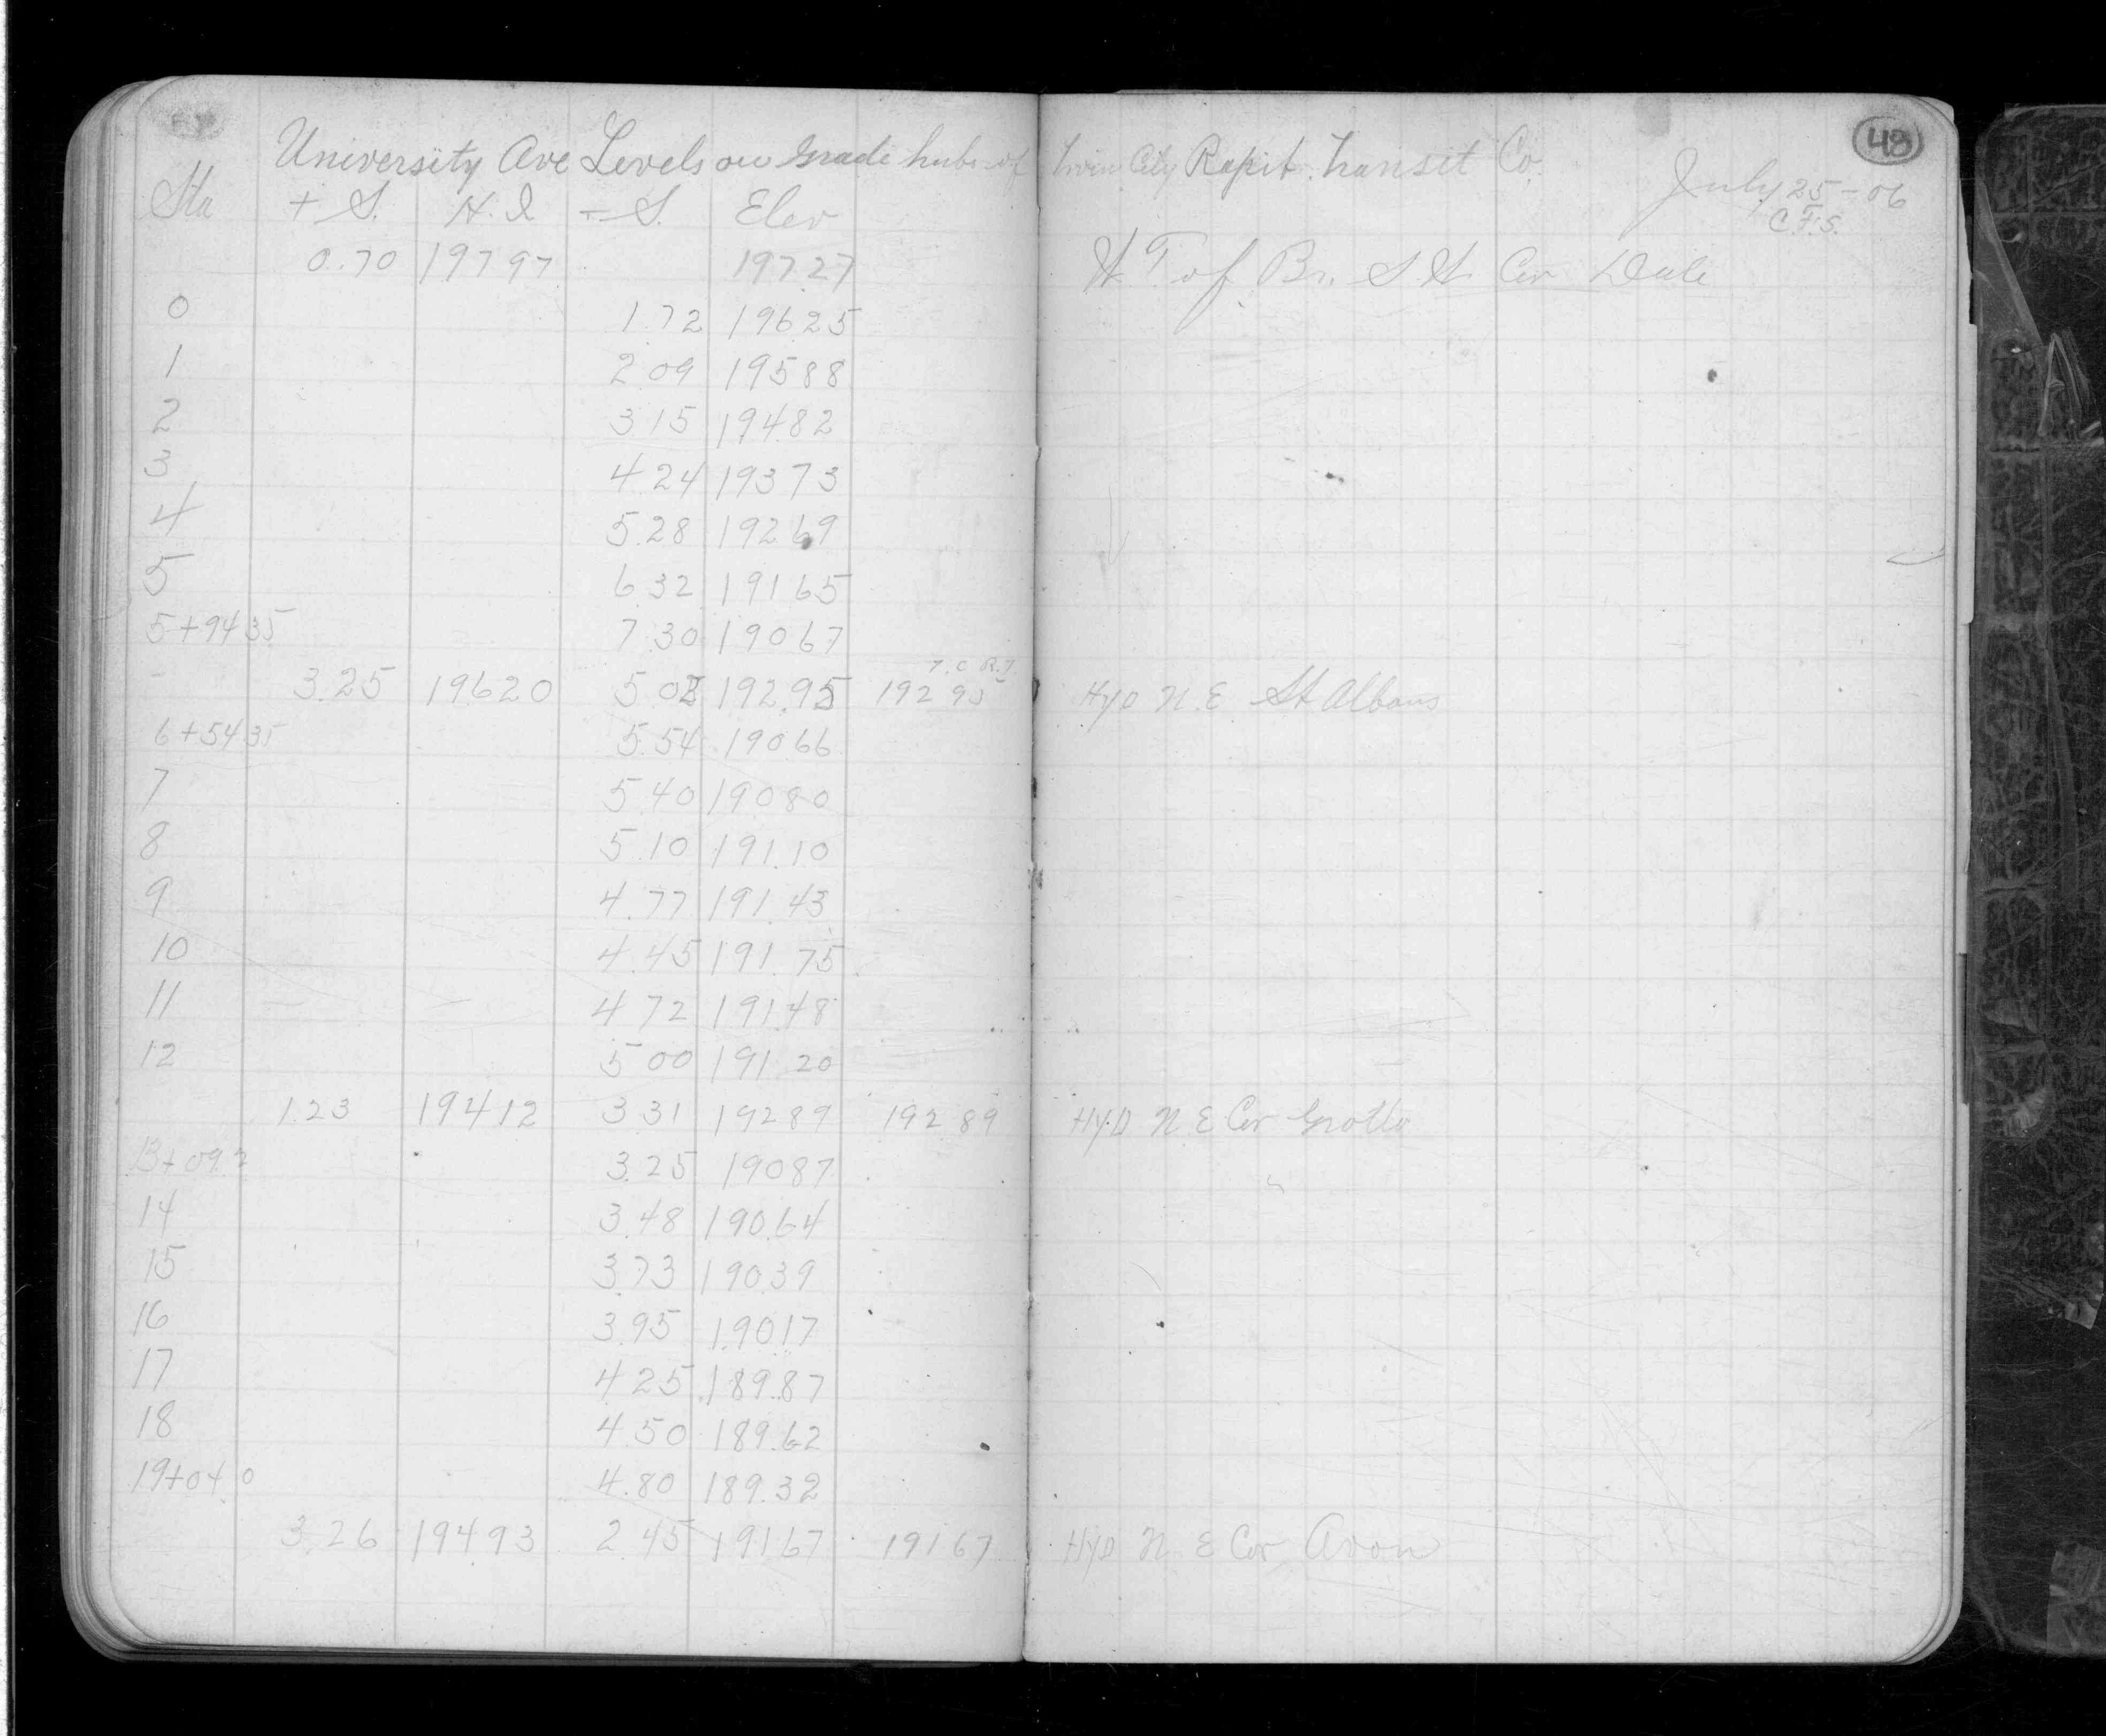 48
University Ave Levels on Grade hubs of Twin City Rapit Transit Co.
July 25-06
C.F.S.
Sta + S. H.I - S. Elev
0.70 197 97 197.27 W T of Br. S.W. Cor Dale
0 1.72 196 25
1 2 09 195 88
2 3 15 194 82
3 4 24 193 73
4 5.28 192 69
5 6 32 191 65
5+94 35 7 30 190 67
T.C.R.T.
3.25 196 20 5 02 192.95 192 95 Hyd N.E St Albans
6+54 35 5.54 190 66
7 5 40 190 80
8 5 10 191.10
9 4.77 191.43
10 4.45 191.75
11 4 72 191.48
12 5 00 191 20
1.23 194 12 3 31 192 89 192 89 Hyd N E Cor Grotto
13+09.2 3.25 190 87
14 3.48 190.64
15 3.73 190.39
16 3.95 190.17
17 4 25 189.87
18 4.50 189.62
19+04.0 4.80 189.32
3.26 194.93 2.45 191 67 191 67 Hyd N. E Cor Avon